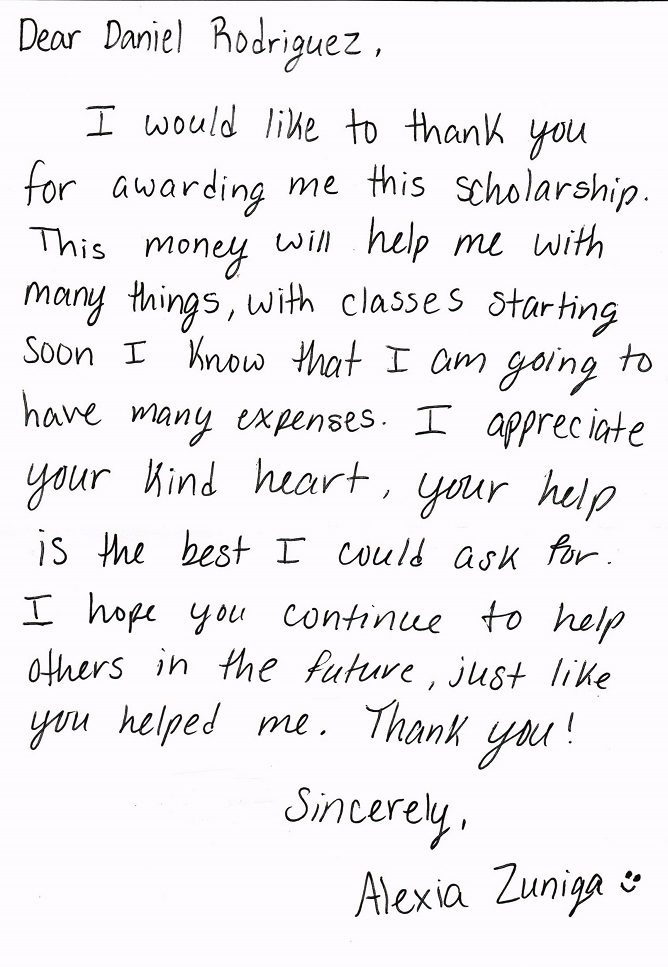 Dear Daniel Rodriguez,
I would like to thank you
for awarding me this scholarship.
This money will help me with
many things, with classes starting
soon I know that I am going to
have many expenses. I appreciate
your kind heart, your help
is the best I could ask for.
I hope you continue to help
others in the future, just like
you helped me. Thank you!
Sincerely,
Alexia Zuniga